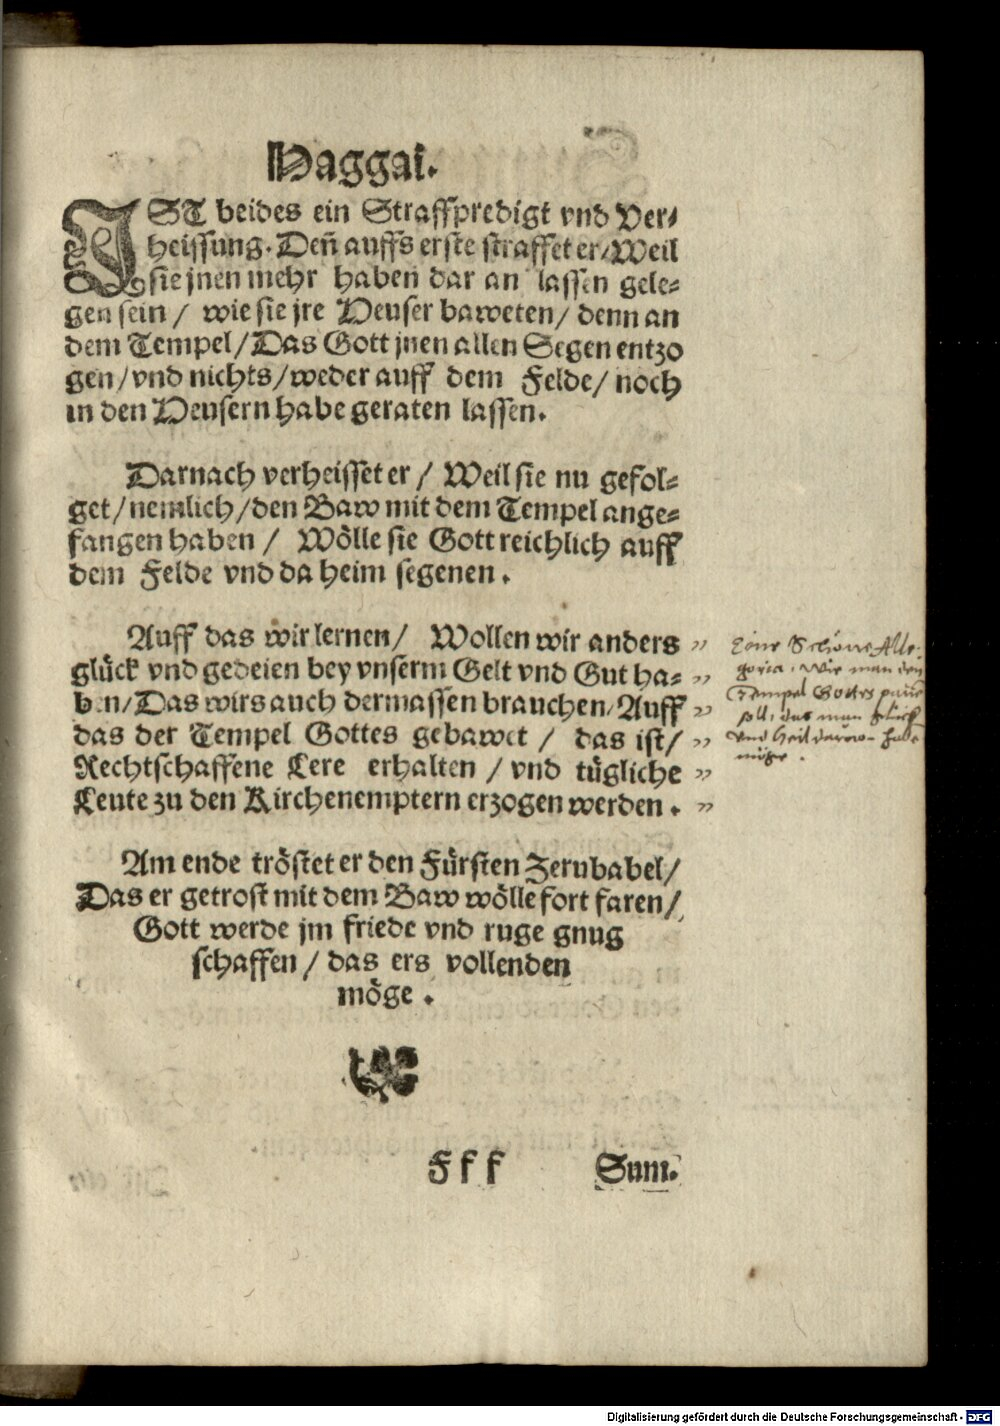 Haggai.
IST beides ein Straffpredigt vnd Ver⸗
heissung. Deñ auffs erste straffet er / Weil
sie jnen mehr haben dar an lassen gele⸗
gen sein / wie sie jre Heuser baweten / denn an
dem Tempel / Das Gott jnen allen Segen entzo
gen / vnd nichts / weder auff dem Felde / noch
in den Heusern habe geraten lassen.
Darnach verheisset er / Weil sie nu gefol⸗
get / nemlich / den Baw mit dem Tempel ange⸗
fangen haben / Wölle sie Gott reichlich auff
dem Felde vnd da heim segenen.
Auff das wir lernen / Wollen wir anders
glück vnd gedeien bey vnserm Gelt vnd Gut ha⸗
ben / Das wirs auch dermassen brauchen / Auff
das der Tempel Gottes gebawet / das ist /
Rechtschaffene Lere erhalten / vnd tügliche
Leute zu den Kirchenemptern erzogen werden.
Eine Schöne Alle⸗
goria, Wie man den
Tempel Gottes
soll, das man glück
vnd Heil daran habe
möge.
Am ende tröstet er den Fürsten Zerubabel /
Das er getrost mit dem Baw wölle fort faren /
Gott werde jm friede vnd ruge gnug
schaffen / das ers vollenden
möge.
F f f Sum.
Digitalisierung gefördert durch die Deutsche Forschungsgemeinschaft - DFG